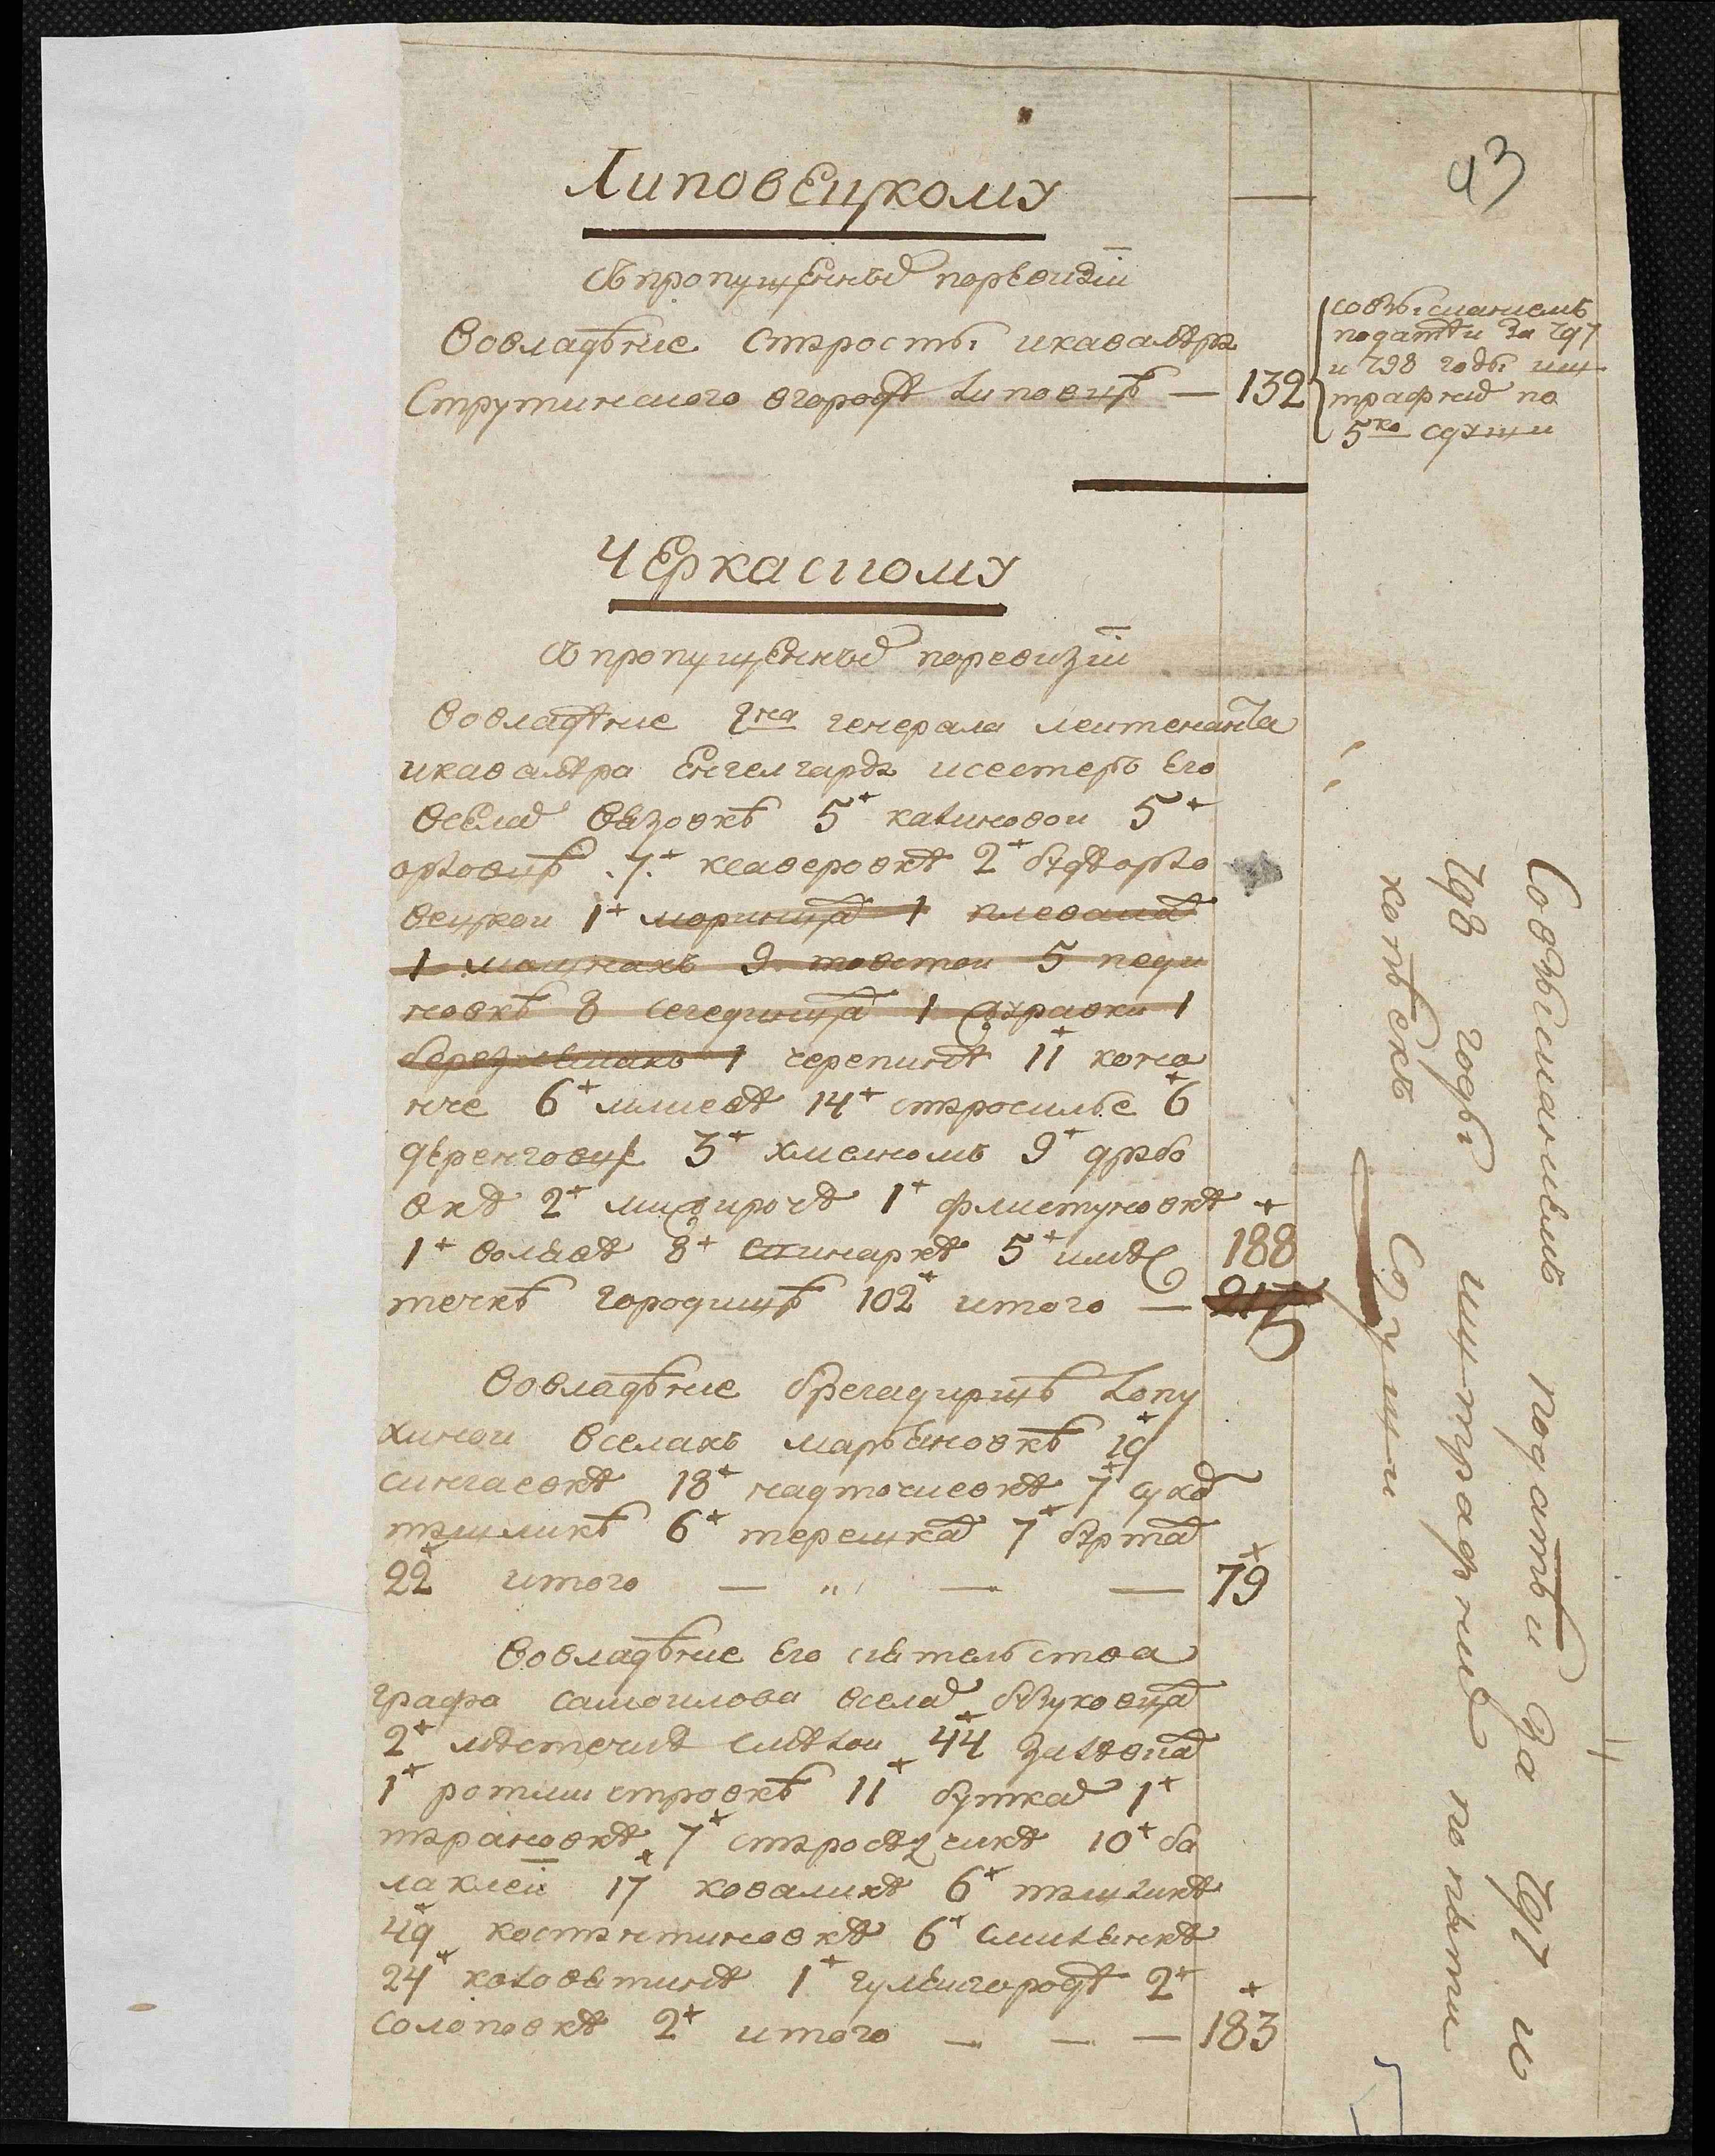 93
Липовецкому
Съ пропущенныхъ поревизіи
Вовладѣние старосты икавалѣра
Струтинского вгородѣ Липовцѣ — 132
совзысканиемъ
податѣи за 797
и 798 годы иш
трафныхъ по
5 ко сдуши
Черкаскому
Съ пропущенныхъ поревизіи
вовладѣние гна генерала леитенанта
икавалѣра Енгелгарда исестеръ Его
вселахъ вязовкѣ 5 калиновои 5
орловцѣ 7 ксаверовкѣ 2 будѣорло
вецкои 1 моринцахъ 1
1 мошнахъ 9 товстои 5 педи
новкѣ 8 сегединцахъ 1 журавки 1
1 черепинѣ 11 кона
нче 6 млиевѣ 14 старосилье 6
деренговцѣ 3 хмелномъ 9 драбо
вкѣ 2 мидировѣ 1 флистуновкѣ
1 волявѣ 8 винаркѣ 5 имѣс 188
течкѣ городищѣ 102 итого — 215
вовладѣние брегадиршѣ Лопу
хинои вселахъ марьяновкѣ 19
сунгаевкѣ 18 надточиевкѣ 7 сухо
ташликѣ 6 терешкахъ 7 буртахъ
22 итого — „ — — 79
вовладѣние Его сиятельства
графа самоилова вселахъ бузуковцахъ
2 мѣстечкѣ смѣлои 44 залѣвкахъ
1 ротмистровкѣ 11 буткахъ 1
тарановкѣ 7 староовязчикѣ 10 ба
лаклеи 17 ковалихѣ 6 ташликѣ
49 костантиновкѣ 6 смилянкѣ
24 коловятинѣ 1 гуляигородѣ 2
солоповкѣ 2 итого — — — 183
Совзысканиемъ податѣи За 797 и
798 годы иштрафныхъ попяти
копѣекъ Сдуши